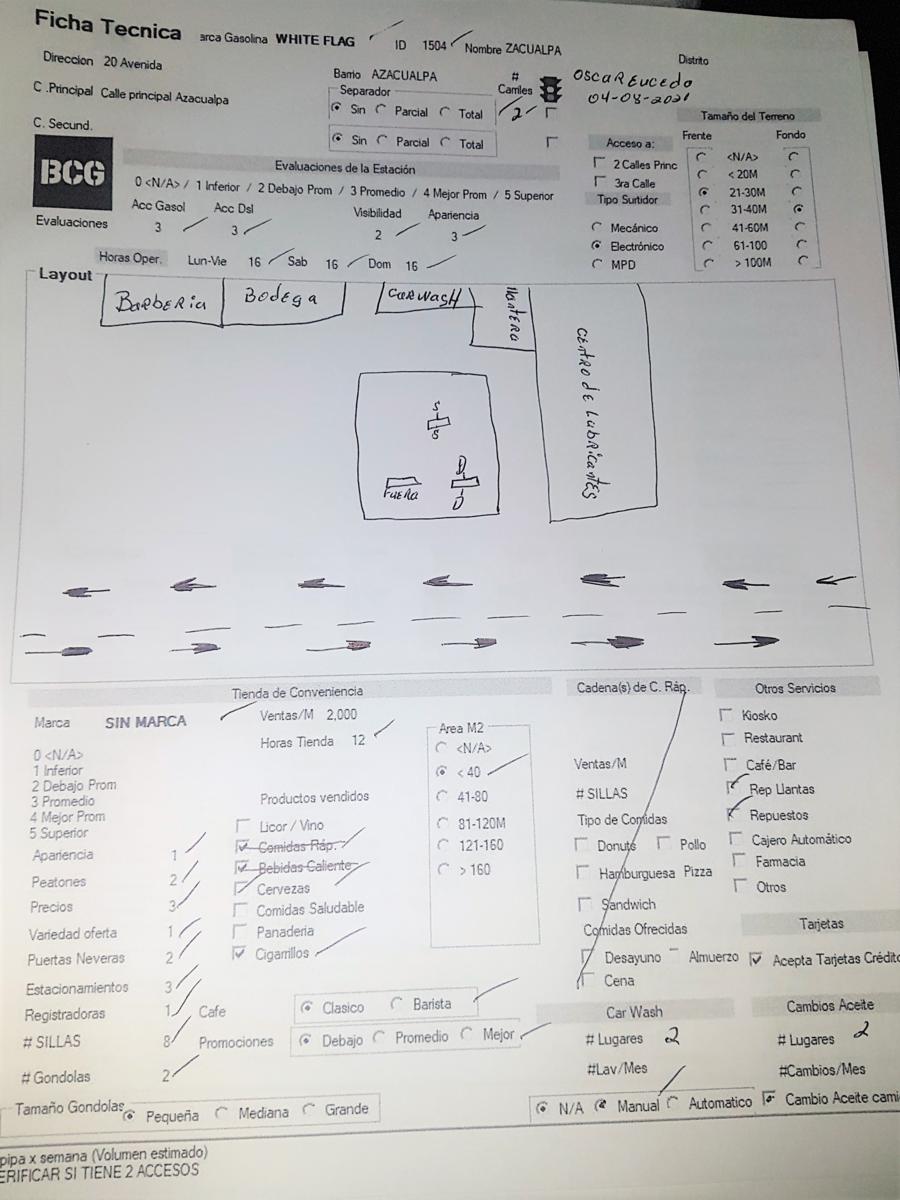 Ficha Tecnica arca Gasolina WHITE FLAG ID 1504 Nombre ZACUALPA
Direccion 20 Avenida Barrio AZACUALPA # Carriles Distrito
OSCAR EUCEDO
04-08-2021
C .Principal Calle principal Azacualpa
Separador
Sin Parcial Total 2
C. Secund.
Sin Parcial Total
Tamaño del Terreno
Frente Fondo
<N/A>
< 20M
21-30M
31-40M
41-60M
61-100
> 100M
Acceso a:
2 Calles Princ
3ra Calle
Tipo Surtidor
Mecánico
Electrónico
MPD
BCG
Evaluaciones de la Estación
0 <N/A> / 1 Inferior / 2 Debajo Prom / 3 Promedio / 4 Mejor Prom / 5 Superior
Evaluaciones
Acc Gasol Acc Dsl Visibilidad Apariencia
3 3 2 3
Horas Oper. Lun-Vie 16 Sab 16 Dom 16
Layout
BARBERIA BODEGA CARWASH llantERA
CENTRO DE LUBRICANTES
S
S
FUERA
D
D
Tienda de Conveniencia
Marca SIN MARCA Ventas/M 2,000
Horas Tienda 12
0 <N/A>
1 Inferior
2 Debajo Prom
3 Promedio
4 Mejor Prom
5 Superior
Apariencia 1
Peatones 2
Precios 3
Variedad oferta 1
Puertas Neveras 2
Estacionamientos 3
Registradoras 1
# SILLAS 8
# Gondolas 2
Productos vendidos
Licor / Vino
Comidas Ráp.
Bebidas Caliente
Cervezas
Comidas Saludable
Panaderia
Cigarrillos
Area M2
<N/A>
< 40
41-80
81-120M
121-160
> 160
Cafe Clasico Barista
Promociones Debajo Promedio Mejor
Tamaño Gondolas Pequeña Mediana Grande
Cadena(s) de C. Ráp.
Ventas/M
# SILLAS
Tipo de Comidas
Donuts Pollo
Hamburguesa Pizza
Sandwich
Comidas Ofrecidas
Desayuno Almuerzo
Cena
Otros Servicios
Kiosko
Restaurant
Café/Bar
Rep Llantas
Repuestos
Cajero Automático
Farmacia
Otros
Tarjetas
Acepta Tarjetas Crédito
Car Wash
# Lugares 2
#Lav/Mes
N/A Manual Automatico
Cambios Aceite
# Lugares 2
#Cambios/Mes
Cambio Aceite cami
pipa x semana (Volumen estimado)
ERIFICAR SI TIENE 2 ACCESOS